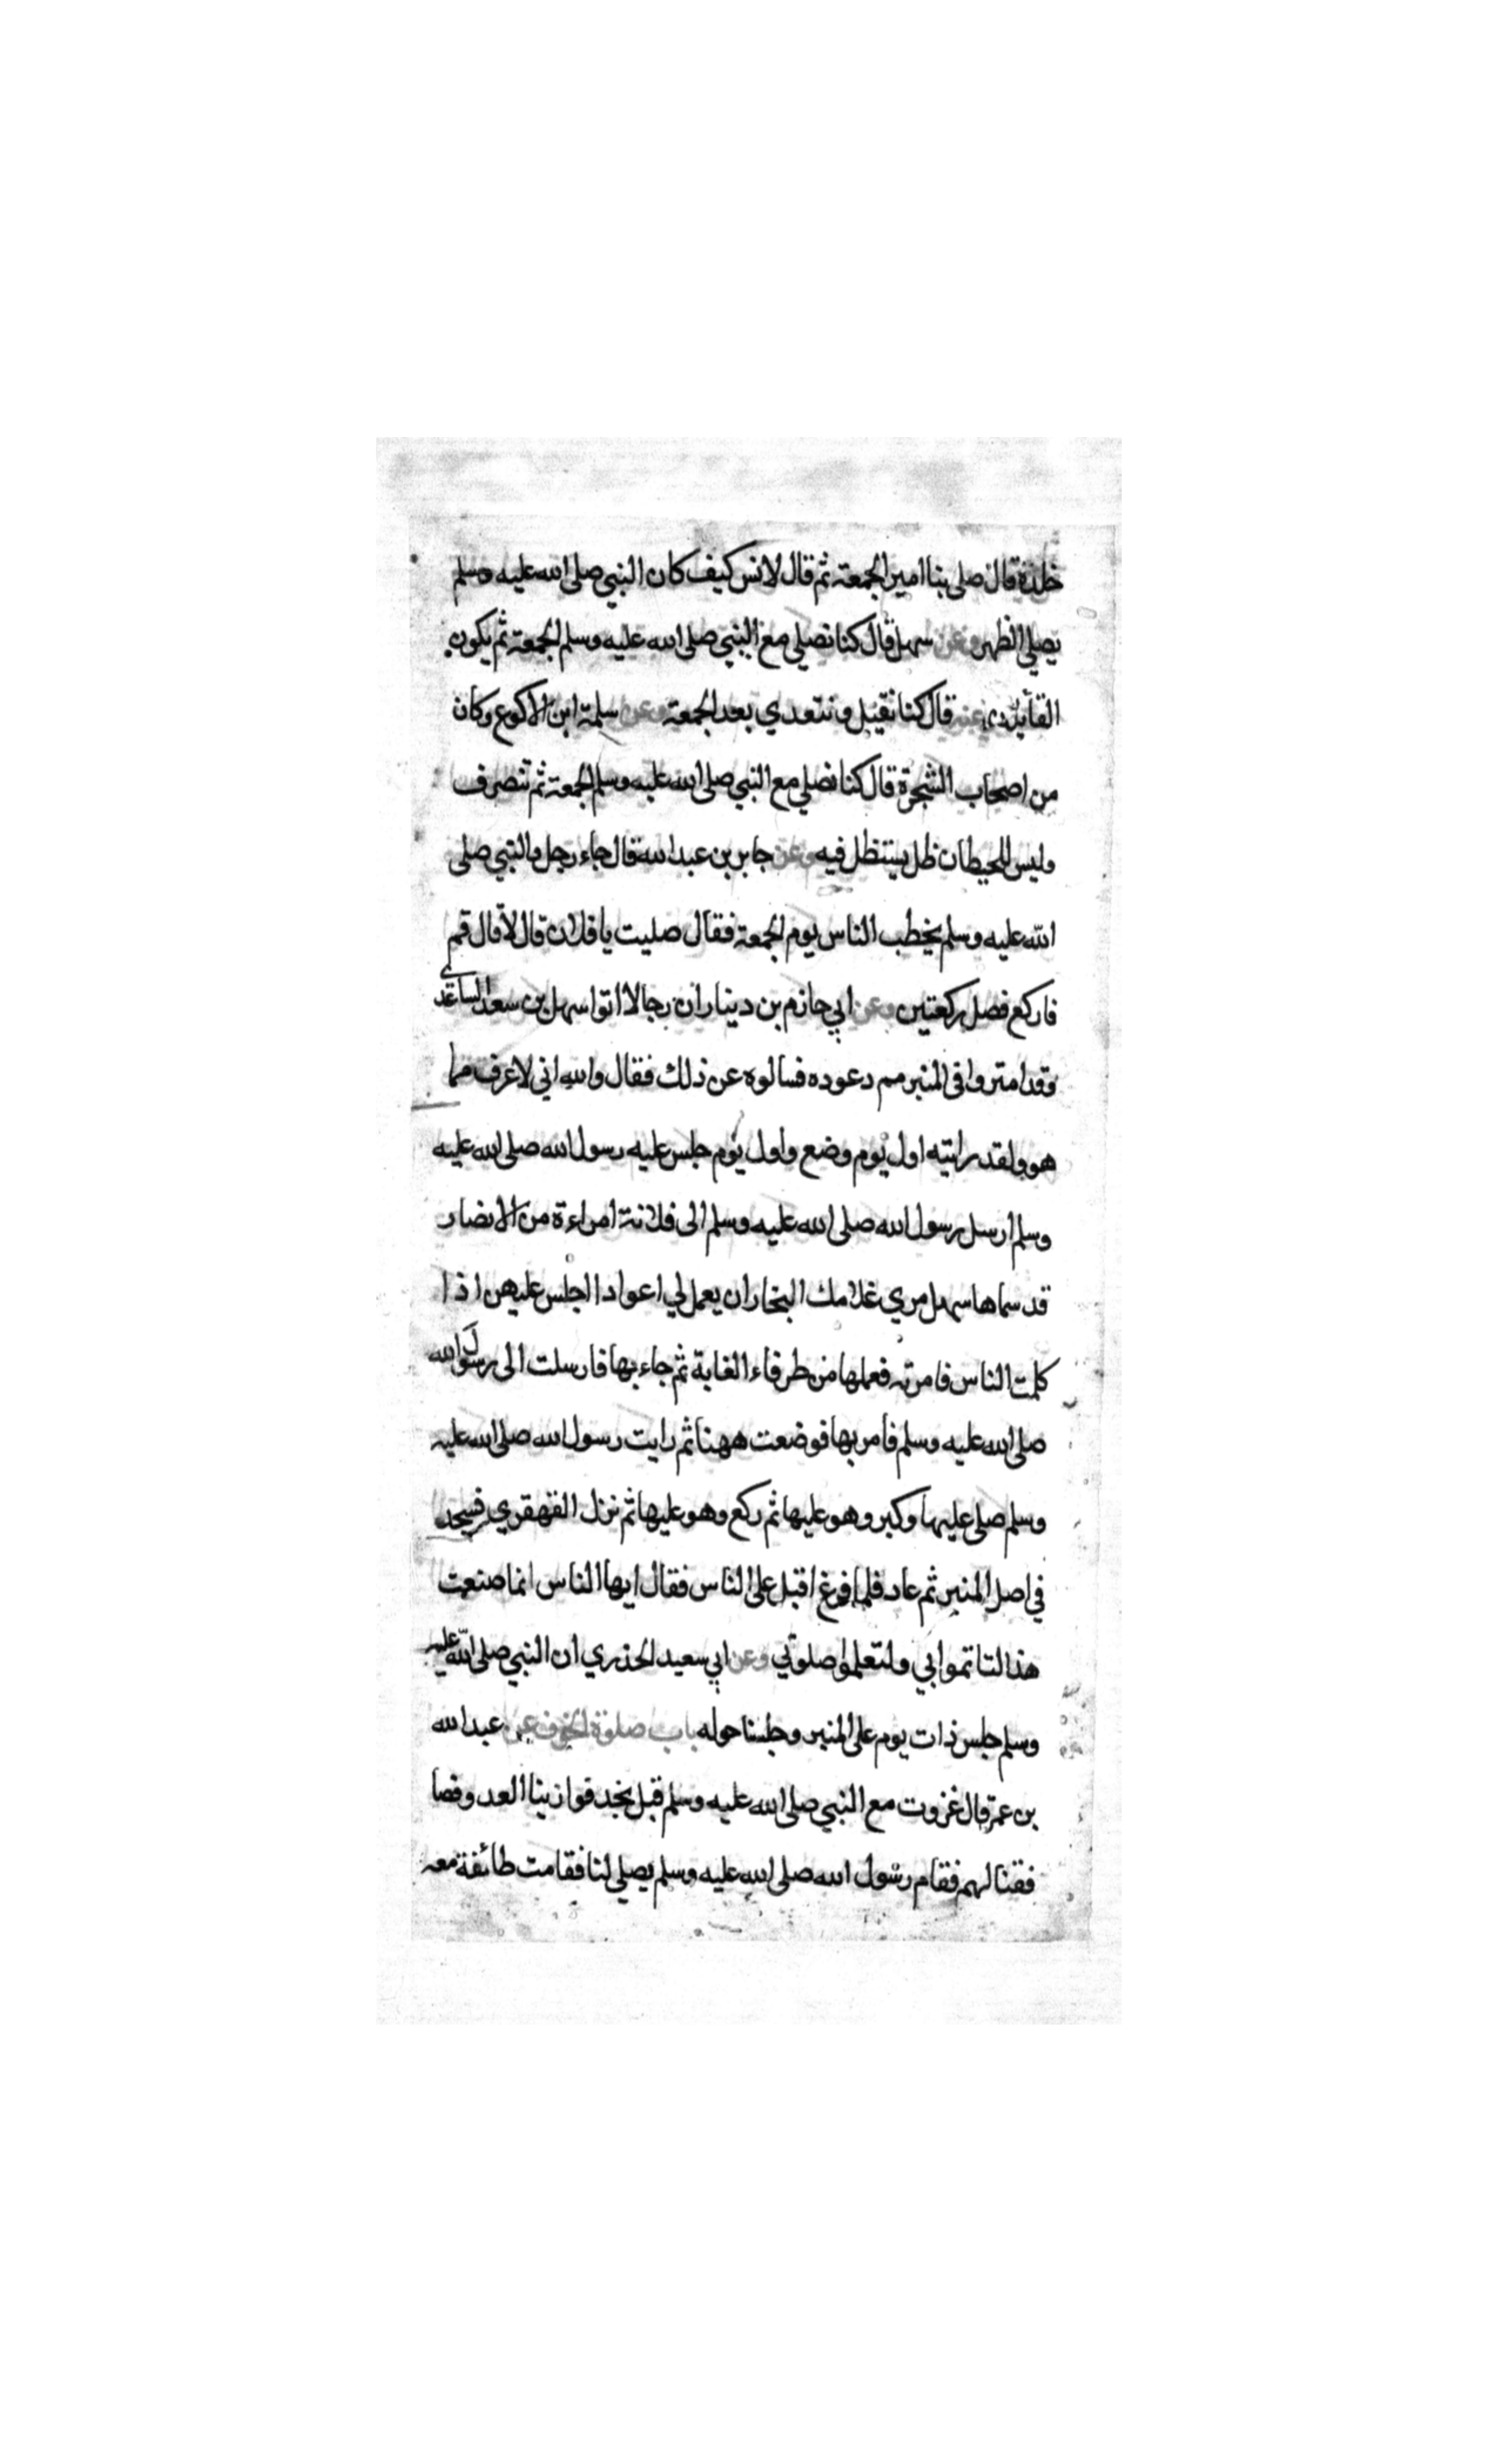 خلدة قال صلى بنا امير الجمعة ثم قال لانس كيف كان النبي صلى الله عليه وسلم
يصلي الظهر وعن سهل قال كنا نصلي مع النبي صلى الله عليه وسلم الجمعة ثم يكون
القائلة وعنه قال كنا نقيل و نتغدي بعد الجمعة وعن سلمة ابن الاكوع وكان
من اصحاب الشجرة قال كنا نصلي مع النبي صلى الله عليه وسلم الجمعة ثم تنصرف
وليس للحيطان ظل يستظل فيه وعن جابر بن عبد الله قال جاء رجل والنبي صلى
الله عليه وسلم يخطب الناس يوم الجمعة فقال صليت يا فلان قال لا قال قم
فاركع فصل ركعتين وعن ابي حازم بن دينار ان رجالا اتوا سهل بن سعد الساعدي
وقد امتروا في المنبر مم دعوده فسالوه عن ذلك فقال والله اني لاعرف مما
هو ولقد رايته اول يوم وضع واول يوم جلس عليه رسول الله صلى الله عليه
وسلم ارسل رسول الله صلى الله عليه وسلم الى فلانة امراءة من الانصار
قد سماها سهل مري غلامك النجار ان يعمل لي اعوادا اجلس عليهن اذا
كلمت الناس فامرته فعملها من طرفاء الغابة ثم جاء بها فارسلت الى رسول الله
صلى الله عليه وسلم فامر بها فوضعت ههنا ثم رايت رسول الله صلى الله عليه
وسلم صلى عليها وكبر وهو عليها ثم ركع وهو عليها ثم نزل القهقري فسجد
في اصل المنبر ثم عاد فلما فرغ اقبل على الناس فقال ايها الناس انما صنعت
هذا لتاتموا بي ولتعلموا صلوتي وعن ابي سعيد الخذري ان النبي صلى الله عليه
وسلم جلس ذات يوم على المنبر وجلسنا حوله باب صلوة الخوف عن عبد الله
بن عمر قال غزوت مع النبي صلى الله عليه وسلم قبل نجد فوازينا العدو فصا
ففنا لهم فقام رسول الله صلى الله عليه وسلم يصلي لنا فقامت طائفة معه